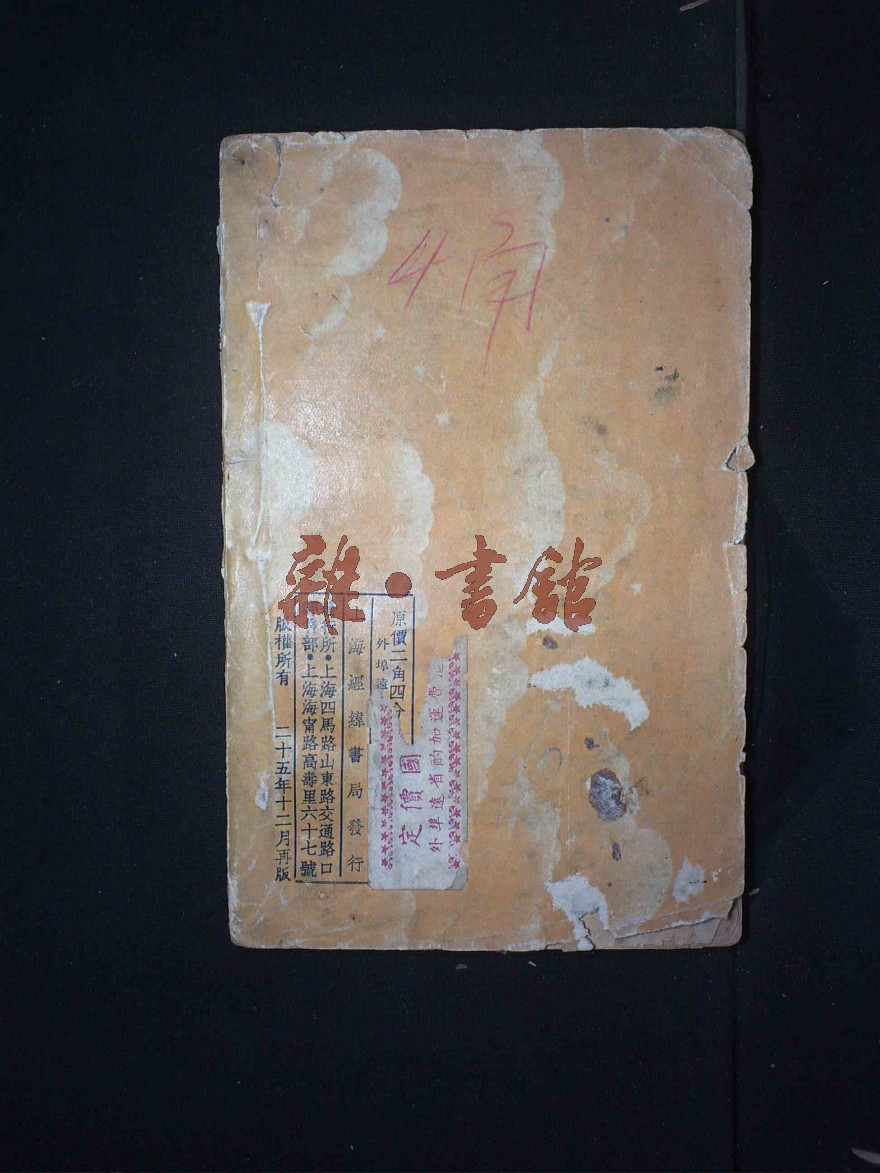 4角
雜·書館
原價二角四分
外埠遠
海經緯書局發行
所·上海四馬路山東路交通路口
部·上海海甯路高壽里六十七號
版權所有 二十五年十二月再版
定價國
外埠遠省酌加運費